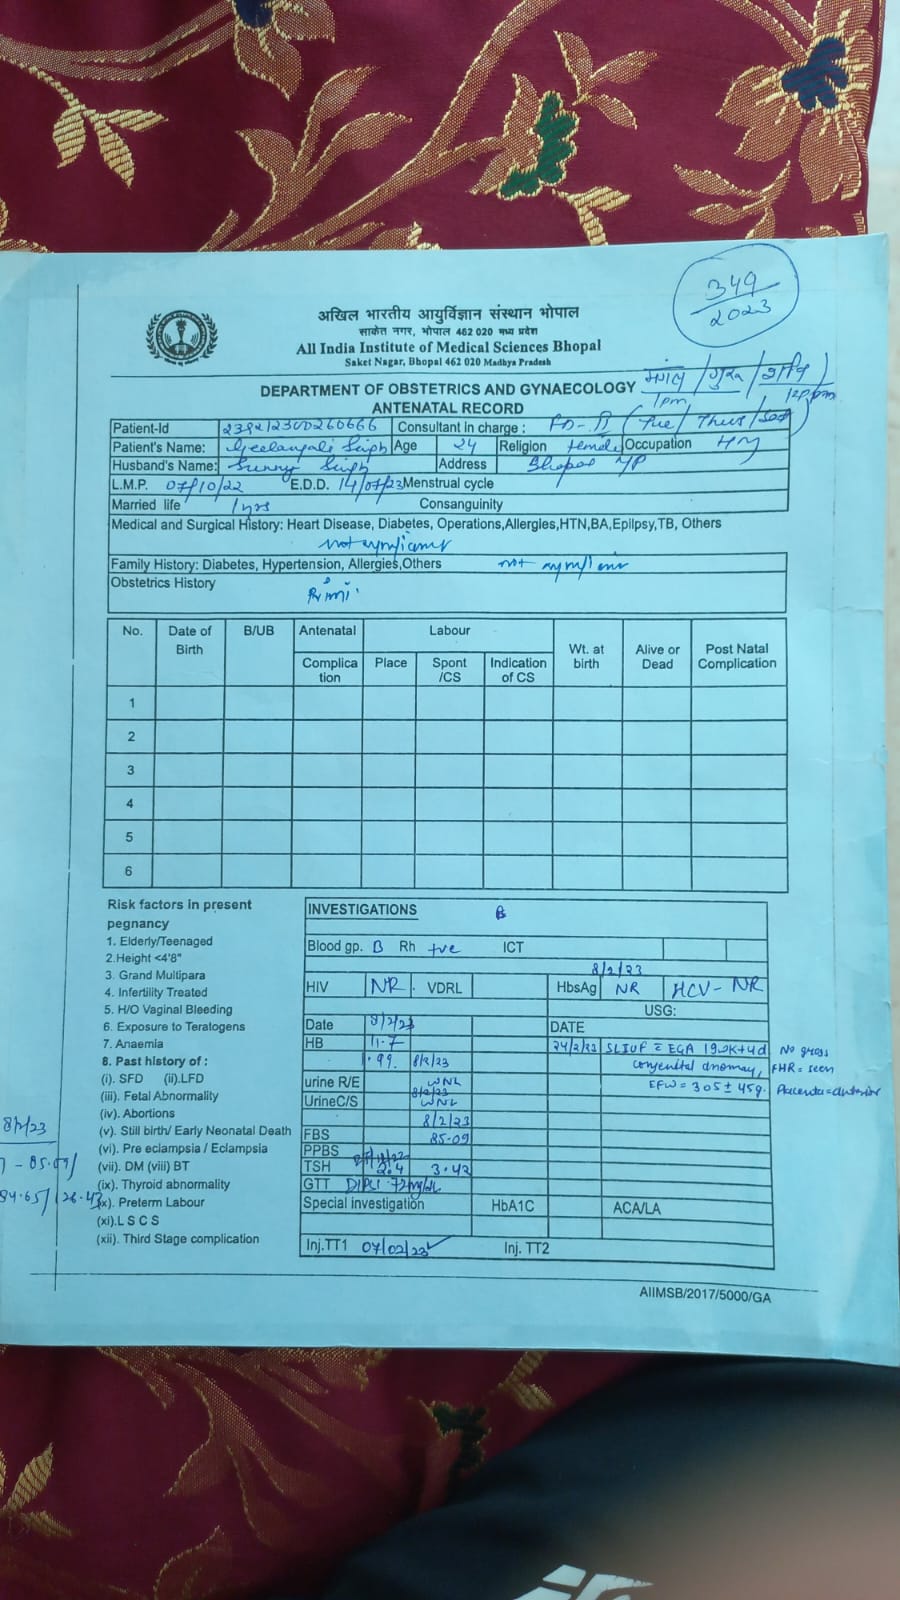 349
2023
अखिल भारतीय आयुर्विज्ञान संस्थान भोपाल
साकेत नगर, भोपाल 462 020 मध्य प्रदेश
All India Institute of Medical Sciences Bhopal
Saket Nagar, Bhopal 462 020 Madhya Pradesh
DEPARTMENT OF OBSTETRICS AND GYNAECOLOGY मंगल / गुरू / शनि
ANTENATAL RECORD 1pm 12pm
Patient-Id Consultant in charge : (Tue / Thus / Sat)
Patient's Name: Geetanjali Singh Age 24 Religion female Occupation HM
Husband's Name: Sunny Singh Address Bhopal MP
L.M.P. 07/10/22 E.D.D. 14/07/23 Menstrual cycle
Married life 1yrs Consanguinity
Medical and Surgical History: Heart Disease, Diabetes, Operations,Allergies,HTN,BA,Epilpsy,TB, Others
not significant
Family History: Diabetes, Hypertension, Allergies,Others not significant
Obstetrics History
Primi
No. Date of Birth B/UB Antenatal Labour Wt. at birth Alive or Dead Post Natal Complication
Complica tion Place Spont /CS Indication of CS
1
2
3
4
5
6
Risk factors in present
pegnancy
1. Elderly/Teenaged
2.Height <4'8"
3. Grand Multipara
4. Infertility Treated
5. H/O Vaginal Bleeding
6. Exposure to Teratogens
7. Anaemia
8. Past history of :
(i). SFD (ii).LFD
(iii). Fetal Abnormality
(iv). Abortions
(v). Still birth/ Early Neonatal Death
(vi). Pre eclampsia / Eclampsia
(vii). DM (viii) BT
(ix). Thyroid abnormality
(x). Preterm Labour
(xi).L S C S
(xii). Third Stage complication
8/2/23
85.09/
84.65/126.43
INVESTIGATIONS B
Blood gp. B Rh +ve ICT
8/2/23
HIV NR VDRL HbsAg NR HCV- NR
USG:
Date 8/2/23 DATE
HB 11.7 24/2/23 SLIUF = EGA 19wk+4d No gross
1.99 8/2/23 congenital anomaly, FHR = seen
urine R/E WNL EFW = 305 ± 45g. Placenta = anterior
8/2/23
UrineC/S WNL
8/2/23
FBS 85.09
PPBS
TSH 2.4 3.42
GTT DIPSI 72mg/dL
Special investigation HbA1C ACA/LA
Inj.TT1 07/02/23 Inj. TT2
AIIMSB/2017/5000/GA